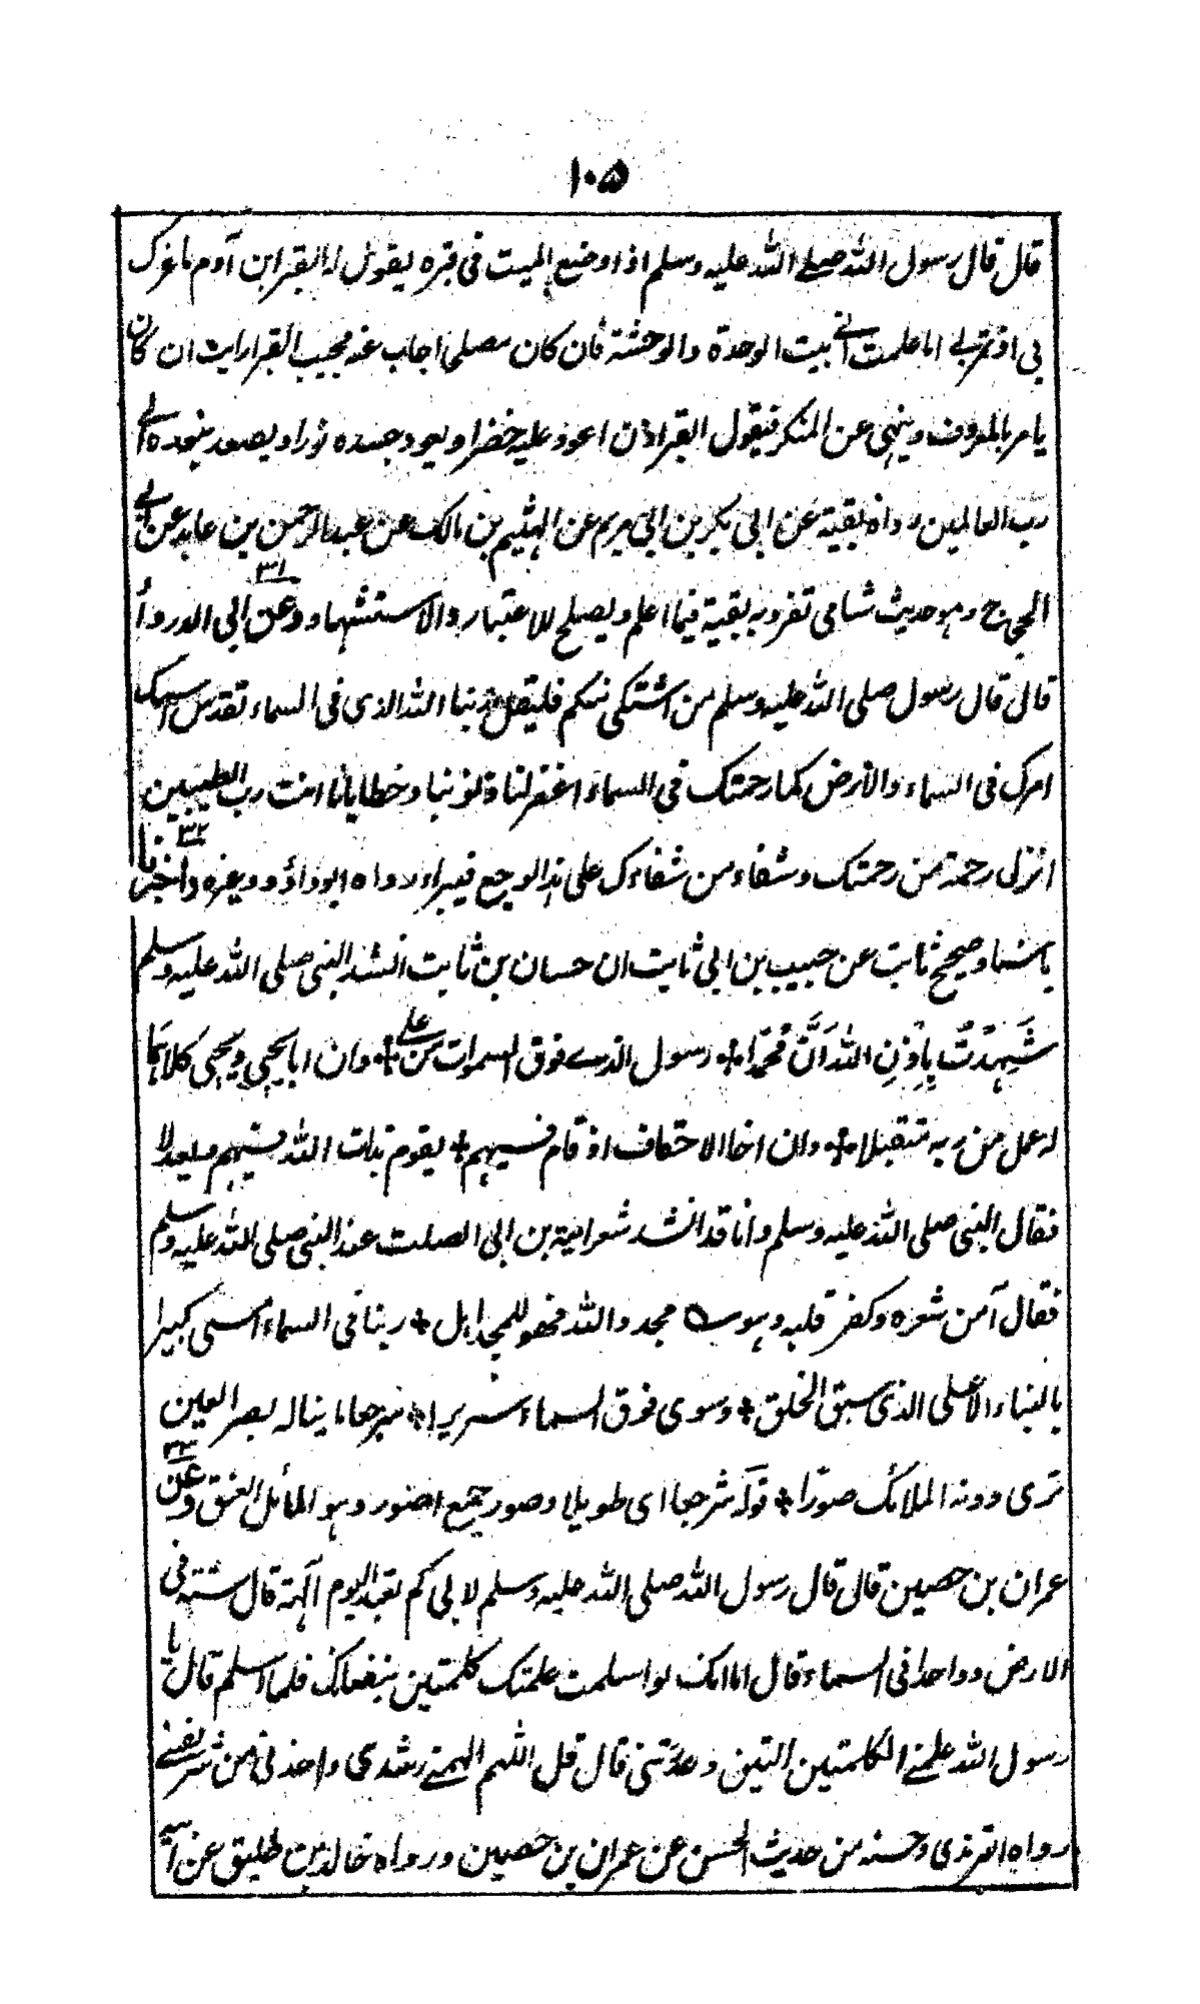 ١٠٥
قال قال رسول الله صلے الله عليه وسلم اذا وضع الميت فى قبره يقول له القبر ابن آدم ما غرك
بى اذ تمر بے اما علمت انے بيت الوحدة والوحشة فان كان مصلحا اجاب عنه مجيب القبر ارايت ان كان
يامر بالمعروف وينهى عن المنكر فيقول القبر اذن اعود عليه خضرا ويعود جسده نورا ويصعد بجسده الے
رب العالمين رواه بقية عن ابى بكر بن ابى مريم عن الهيثم بن مالك عن عبد الرحمن بن عايد عن ابے
الحجاج وهو حديث شامى تفرد به بقية فيما اعلم ويصلح للاعتبار والاستشهاد ٣١ وعن ابى الدرداُ
قال قال رسول صلى الله عليه وسلم من اشتكى منكم فليقل ربنا الله الذى فى السماء تقدس اسمك
امرك فى السماء والارض كما رحمتك فى السماء اغفر لنا ذنوبنا وخطايانا انت رب الطيبين
انزل رحمة من رحمتك وشفاء من شفاءك على هذا الوجع فيبراء رواه ابو داؤد وغيره ٣٢ واخبرنا
باسناد صحيح ثابت عن حبيب بن ابى ثابت ان حسان بن ثابت انشد النبى صلى الله عليه وسلم
شَهِدْتُ بِاِذْنِ اللهِ اَنَّ مُحَمَّدًا ÷ رسول الذے فوق السموات من علے ÷ وان ابا يحيى ويحيى كلاهما
له عمل من ربه متقبلا ÷ وان اخا الاحقاف اذ قام فيهم + يقوم بذات الله فيهم ويعدلا
فقال النبى صلى الله عليه وسلم وانا وقد انشد شعر امية بن ابى الصلت عند النبى صلى الله عليه وسلم
فقال آمن شعره وكفر قلبه وهو مجدوا الله فهو للمجد اهل + ربنا فى السماء امسى كبيرا
بالبناء الاعلى الذى سبق الخلق + وسوى فوق السماء سريرا + شرجعا ما يناله بصر العين
ترى دونه الملائك صورا + قوله شرجعا اى طويلا وصور جمع اصور وهو المائل العنق ٣٣ وعن
عمران بن حصين قال قال رسول الله صلى الله عليه وسلم لابى كم تعبد اليوم آلهة قال ستة فى
الارض وواحدا فى السماء قال اما انك لو اسلمت علمتك كلمتين ينفعانك فلما اسلم قال يا
رسول الله علمنے الكلمتين التين وعدتنى قال قل اللهم الهمنے رشدى واعذنى من شر نفسے
رواه الترمذى وحسنه من حديث الحسن عن عمران بن حصين ورواه خالد بن طليق عن ابيه